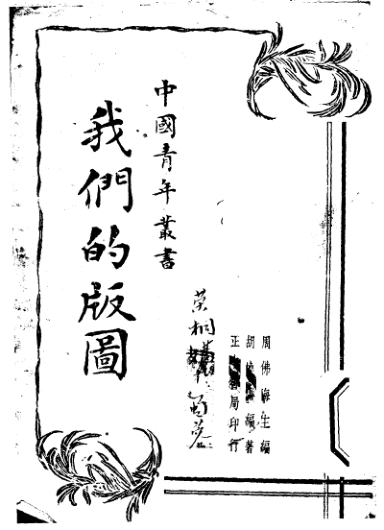 周佛海主編
胡編著
正書局印行
榮桐
中國青年叢書
我們的版圖